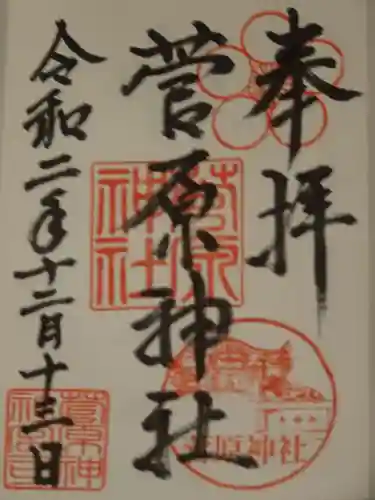 奉拝
菅原神社
令和二年十二月十三日
菅原神社
菅原神社